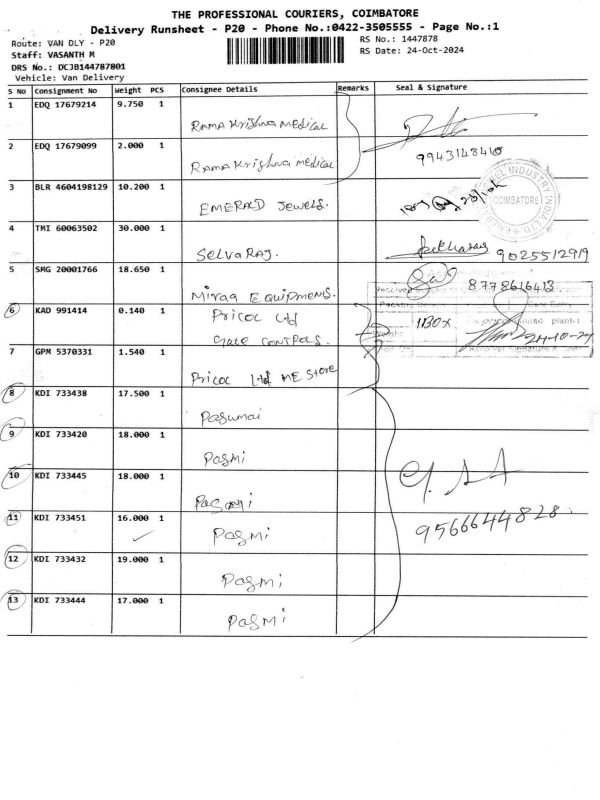 THE PROFESSIONAL COURIERS, COIMBATORE
Delivery Runsheet - P20 - Phone No.:0422-3505555 - Page No.:1
Route: VAN DLY - P20
RS No.: 1447878
Staff: VASANTH M
RS Date: 24-Oct-2024
DRS No.: DCJB144787801
Vehicle: Van Delivery
S No Consignment No Weight PCS Consignee Details Remarks Seal & Signature
1 EDQ 17679214 9.750 1
Rama Krishna Medical
2 EDQ 17679099 2.000 1
9943148410
Rama Krishna Medical
3 BLR 4604198129 10.200 1
COIMBATORE
EMERALD Jewels.
4 TMI 60063502 30.000 1
SELVARAJ. 9025512919
5 SMG 20001766 18.650 1
8778616413
Miraa Equipments.
6 KAD 991414 0.140 1
Pricol Ltd
1BOX
Gate CONTROLS.
24-10-24
7 GPM 5370331 1.540 1
Pricol Ltd ME Store
8 KDI 733438 17.500 1
Pasumai
9 KDI 733420 18.000 1
Pasmi
10 KDI 733445 18.000 1
Pasmi
11 KDI 733451 16.000 1
9566644828.
Pasmi
12 KDI 733432 19.000 1
Pasmi
13 KDI 733444 17.000 1
Pasmi